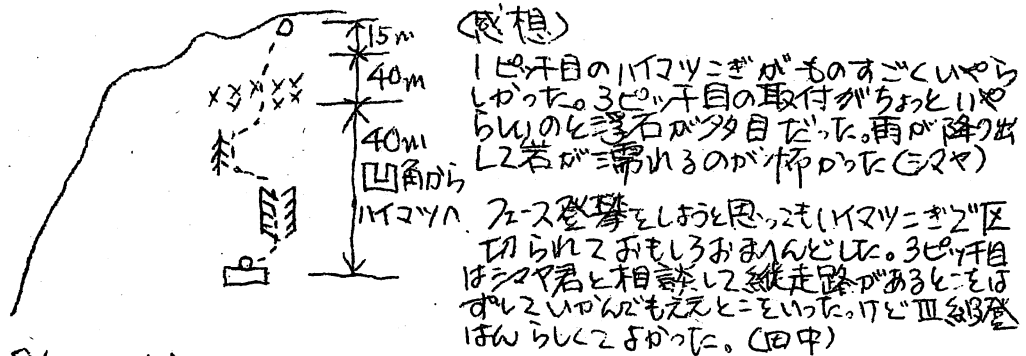 15m
40m
40m
凹角から
ハイマツへ
(感想)
1ピッチ目のハイマツこぎがものすごくいやら
しかった。3ピッチ目の取付がちょっといや
らしいのと浮石が多目だった。雨が降り出
して岩が濡れるのが怖かった(シマヤ)
フェース登攀をしようと思ってもハイマツこぎで区
切られておもしろおまへんどした。3ピッチ目
はシマヤ君と相談して縦走路があるとこをは
ずしていかんでもええとこをいった。けどⅢ級登
はんらしくてよかった。(田中)